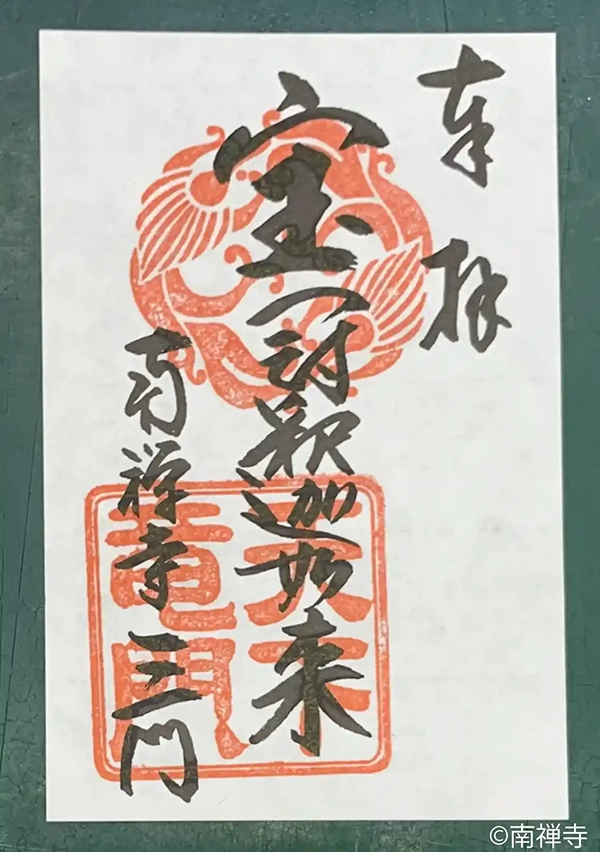 奉拝
宝冠釈迦如来
南禅寺 三門
天下
竜門
©南禅寺